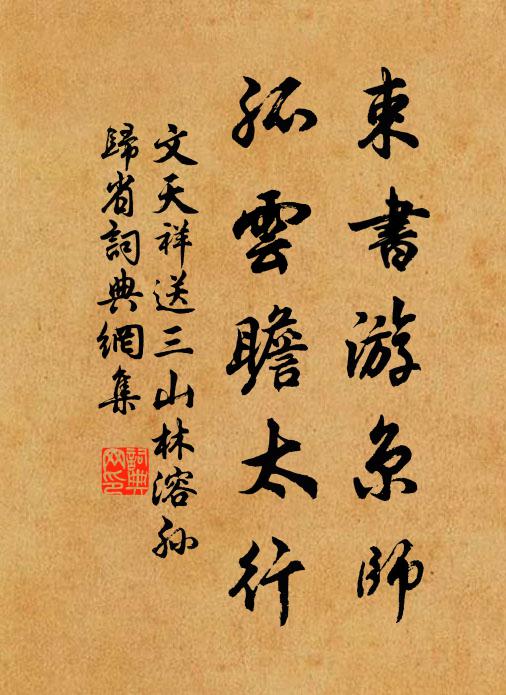 束書游京師
孤雲瞻太行
文天祥送三山林溶孙
歸省詞典網集
詞典網印